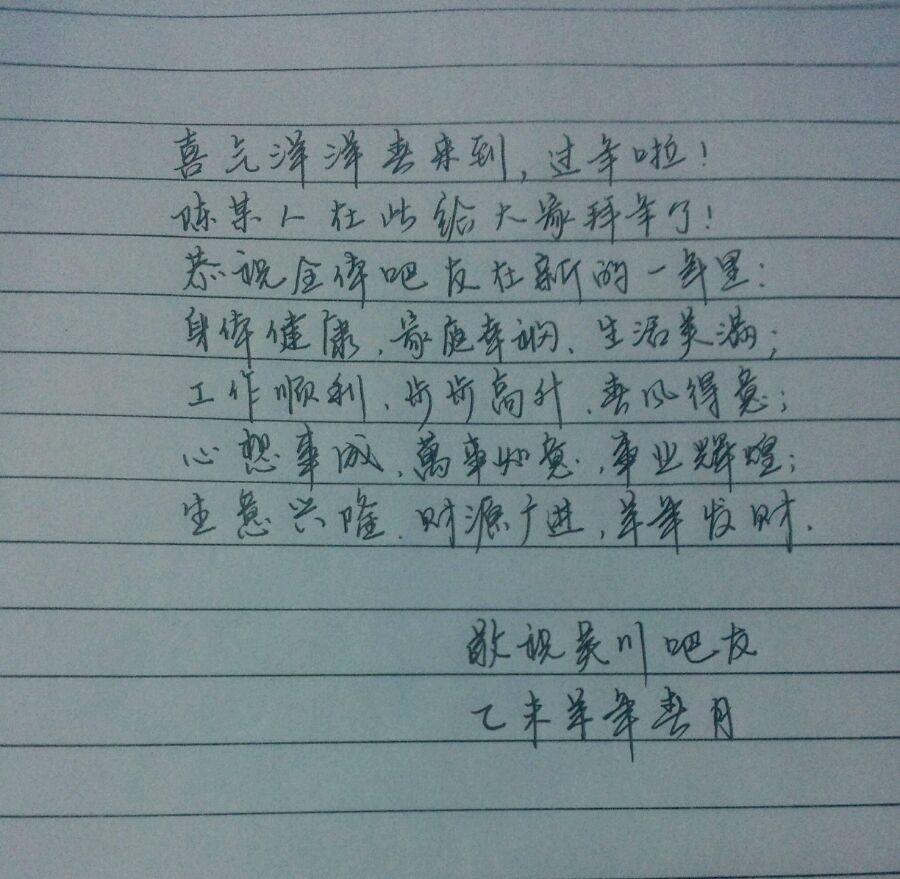 喜气洋洋春来到，过年啦！
陈某人在此给大家拜年了！
恭祝全体吧友在新的一年里：
身体健康、家庭幸福、生活美满；
工作顺利、步步高升、春风得意；
心想事成、萬事如意、事业辉煌；
生意兴隆、财源广进、羊年发财.
敬祝吴川吧友
乙未羊年春月